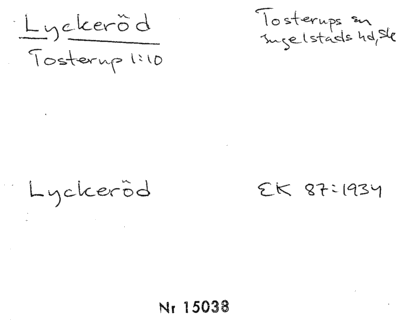 Lyckeröd
Tosterups sn
Tosterup 1:10
Ingelstads hd, Sk
Lyckeröd
EK 87:1934
Nr 15038